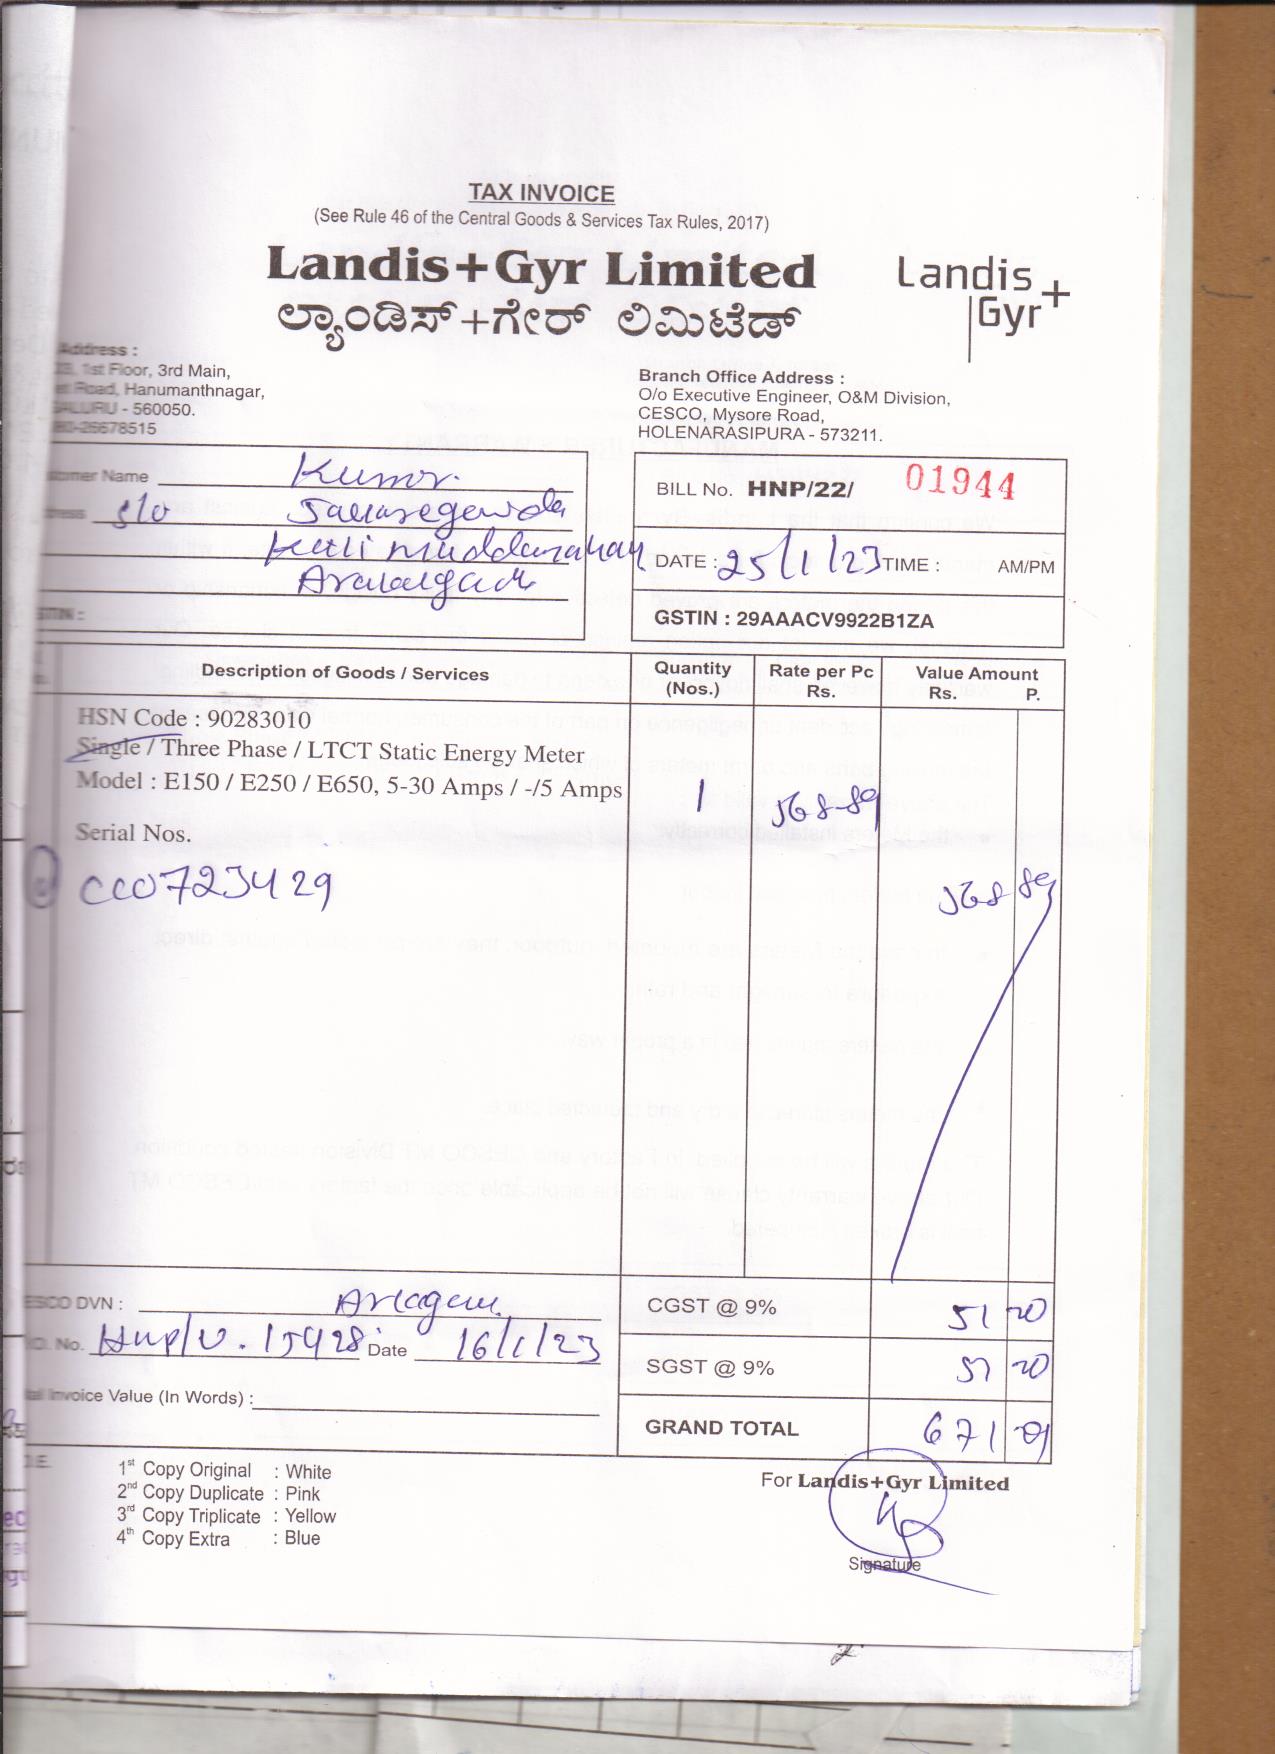 TAX INVOICE
(See Rule 46 of the Central Goods & Services Tax Rules, 2017)
Landis+Gyr Limited
ಲ್ಯಾಂಡಿಸ್+ಗೇರ್ ಲಿಮಿಟೆಡ್
Landis
Gyr+
Address :
1st Floor, 3rd Main,
Road, Hanumanthnagar,
- 560050.
-26678515
Branch Office Address :
O/o Executive Engineer, O&M Division,
CESCO, Mysore Road,
HOLENARASIPURA - 573211.
Name Kumar.
s/o
BILL No. HNP/22/ 01944
DATE : 25/1/23 TIME : AM/PM
GSTIN : 29AAACV9922B1ZA
Description of Goods / Services Quantity (Nos.) Rate per Pc Rs. Value Amount Rs. P.
HSN Code : 90283010
Single / Three Phase / LTCT Static Energy Meter
Model : E150 / E250 / E650, 5-30 Amps / -/5 Amps 1 568-89
Serial Nos.
568 89
DVN :
CGST @ 9% 51 20
No. Date 16/1/23
SGST @ 9% 51 20
Invoice Value (In Words) :
GRAND TOTAL 671
1st Copy Original : White
2nd Copy Duplicate : Pink
3rd Copy Triplicate : Yellow
4th Copy Extra : Blue
For Landis+Gyr Limited
Signature